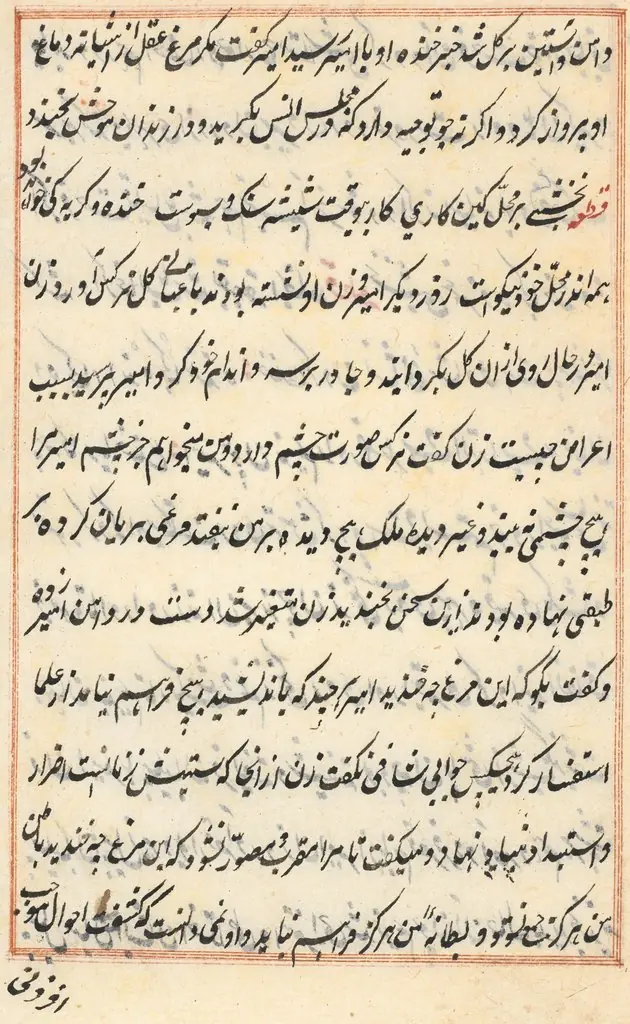 دامن و آستین پر گل شد خبر خنده او با امیر رسید امیر گفت مگر مرغ عقل از آشیانه دماغ
او پرواز کرد و اگر نه چو توجیه دارد که در مجلس انس بگرید و در زندان موحش بخندد
قطعه نخشبی بر محل کین کاری کار بوقت شیشه سنک و سبوست خنده و کریه کی خوانده بود
همه اندر محل خود نیکوست روز دیگر امیر و زن او نشسته بودند باغبانی گل نرکس آورد زن
امیر در حال روی از آن گل بگردانید و چادر بر سر و اندام خود کرد امیر پرسید سبب
اعراض چیست زن گفت نرکس صورت چشم دارد و من میخواهم جز چشم امیر مرا
هیچ چشمی نه بیند و غیر دیده ملک هیچ دیده بر من نیفتد مرغی بریان کرده بر
طبقی نهاده بودند ازین سخن بخندید زن متغیر شد و دست در دامن امیر زده
و گفت بگو که این مرغ چه خندید امیر هر چند که باندیشید هیچ فراهم نیامد از علما
استفسار کرد هیچکس جوابی شافی نگفت زن از آنجا که ستیزش زنانست اضرار
و استبداد بنیاد نهاد و میگفت تا مرا مقرر و مصور نشود که این مرغ چه خندید باطن
من هرگز خوش نشود و بطانه من هرگز فراهم نیاید و او نمی دانست که کشف احوال موجب
افزونی